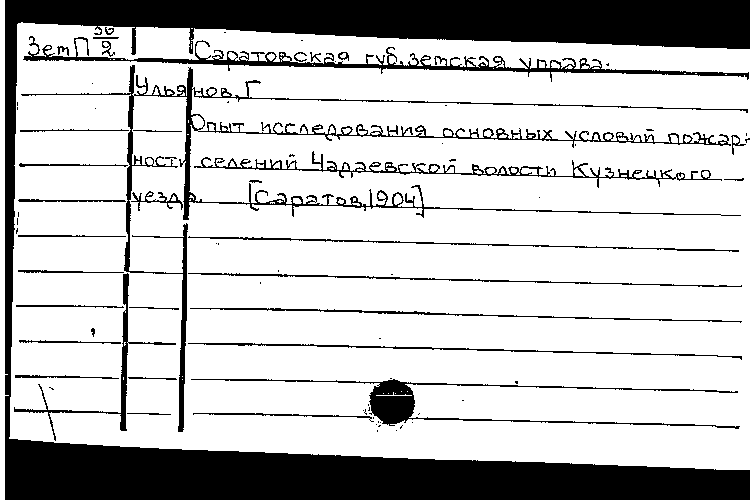 ЗемП 30/2 Саратовская губ. земская управа.
Ульянов, Г
Опыт исследования основных условий пожар-
ности селений Чадаевской волости Кузнецкого
уезда. [Саратов, 1904]